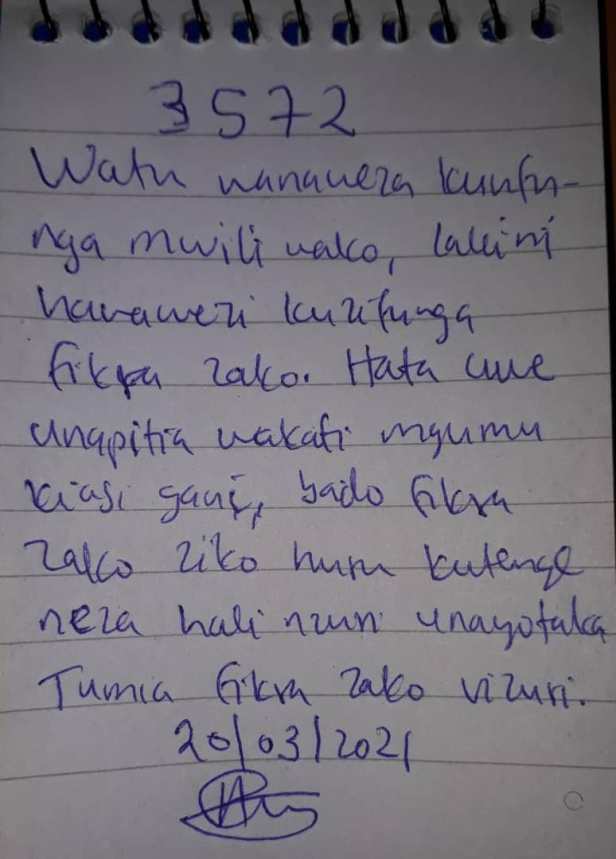 3572
Watu wanaweza kuufu-
nga mwili wako, lakini
hawawezi kuzifunga
fikra zako. Hata uwe
unapitia wakati mgumu
kiasi gani, bado fikra
zako ziko huru kutenge
neza hali nzuri unayotaka
Tumia fikra zako vizuri.
20/03/2021